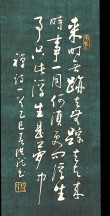 来时无迹去无踪去与来
时事一同何须更问浮生
事只此浮生是梦中
禅诗一首乙巳